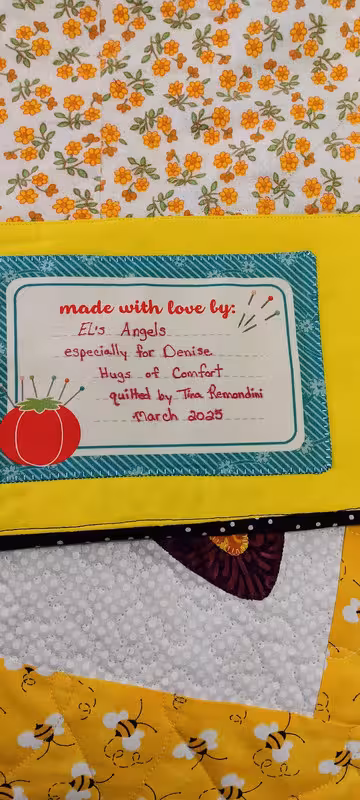 made with love by:
EL's Angels
especially for Denise
Hugs of Comfort
quilted by Tina Remondini
March 2025